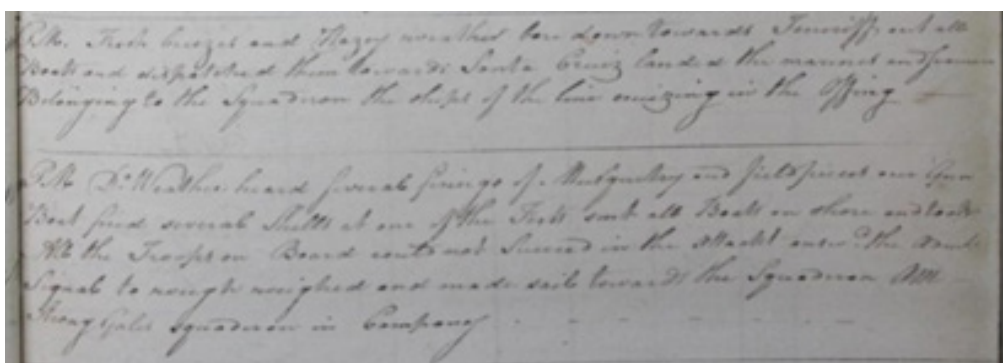 P.M. Fresh breezes and Hazey weather bore down towards Tenriff, out all
Boats and dispatched them towards Santa Cruiz landed the marines and seamen
Belonging to the Squadron the ships of the line cruizing in the Offing
P.M. Do. Weather heard several firings of Musquetry and field pieces our Gun
Boat fired several Shells at one of the Forts sent all Boats on shore and took
All the Troops on Board could not Succeed in the Attackt answd. the
Signal to weigh weighed and made sail towards the Squadron AM
Strong Gales squadron in Company